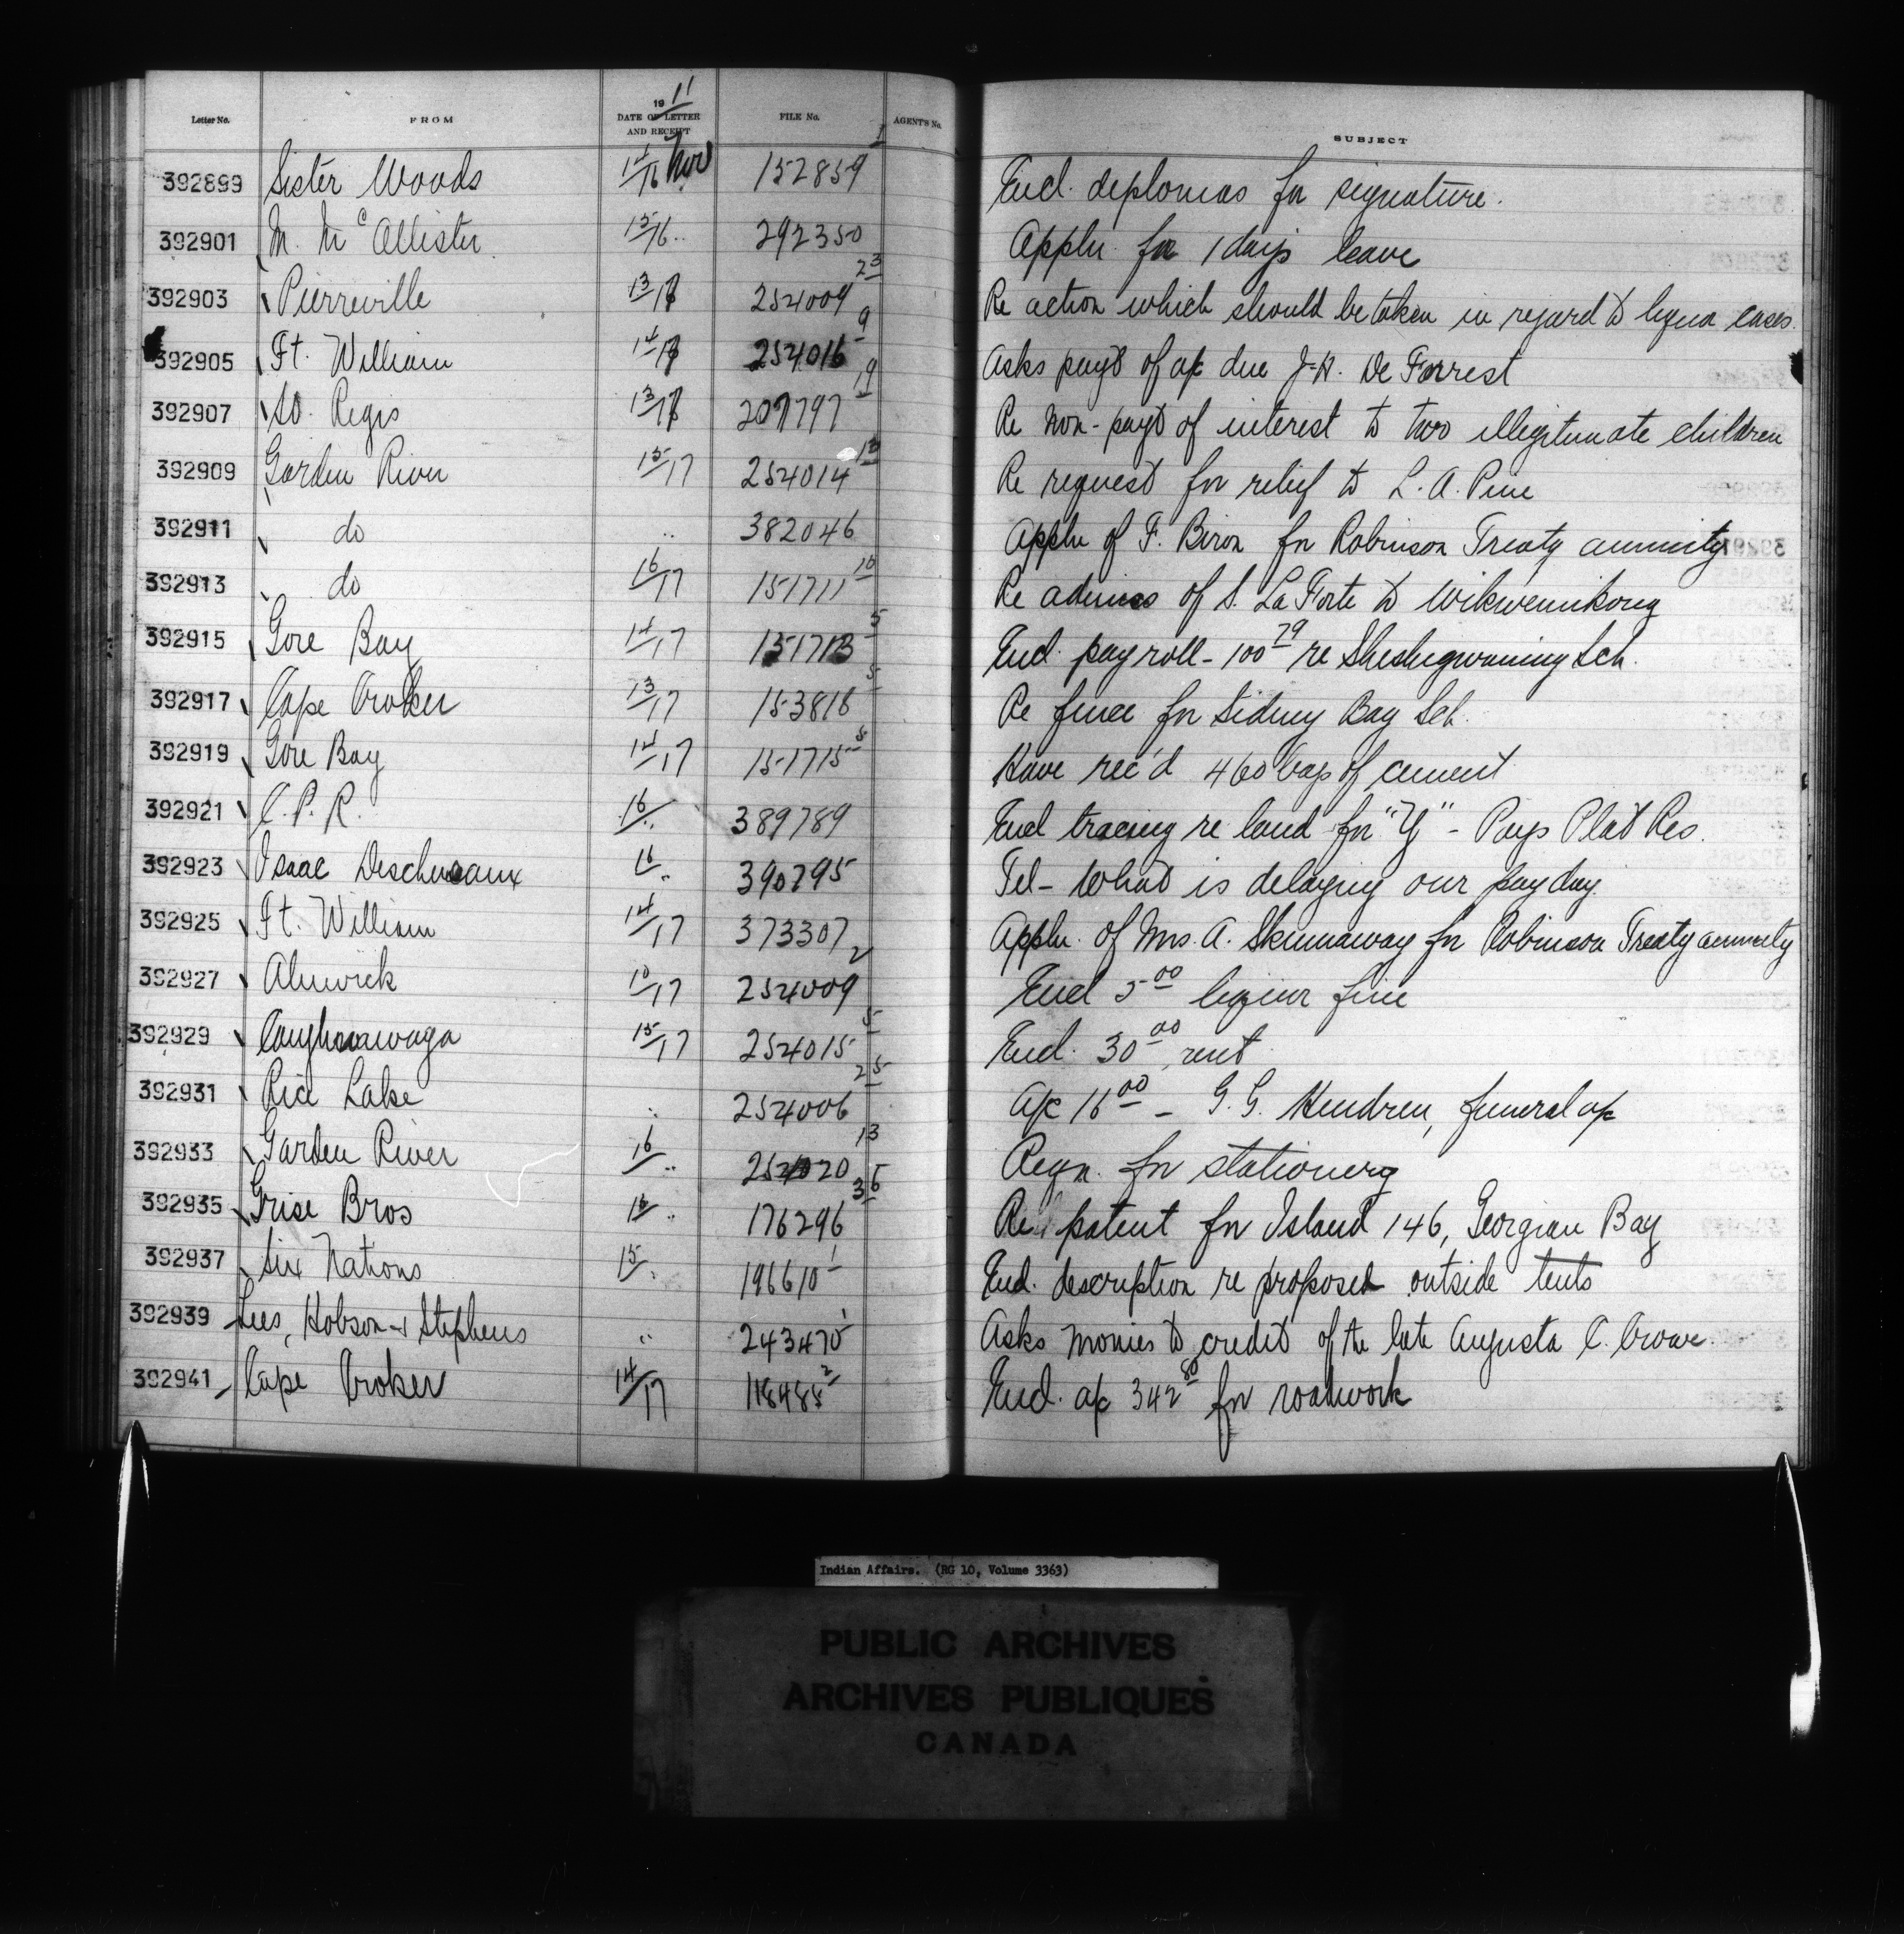 Letter No. FROM 1911 DATE OF LETTER AND RECEIPT FILE No. AGENT'S No. SUBJECT
392899 Sister Woods 14/16 Nov 152859 1 Encl. deplomas for signature.
392901 M. McAllister 15/16 .. 292350 Appln. for 1 days leave
392903 Pierreville 13/17 254009 23 Re action which should be taken in regard to liquor cases.
392905 Ft. William 14/17 254016 9 Asks payt of a/c due J. H. De Forrest
392907 St. Regis 13/17 207797 19 Re non-payt of interest to two illegitimate children
392909 Garden River 15/17 254014 13 Re request for relief to L. A. Pine
392911 do .. 382046 Appln of F. Biron for Robinson Treaty annuity
392913 do 16/17 151711 10 Re admiss of S. La Forte to Wikwemikong
392915 Gore Bay 14/17 151713 5 Encl. payroll - 100 79 re Sheshegwaning Sch.
392917 Cape Croker 13/17 153816 5 Re fence for Sidney Bay Sch.
392919 Gore Bay 14/17 151715 8 Have rec'd 460 bags of cement
392921 C. P. R. 16/.. 389789 Encl tracing re land for "Y" - Pays Plat Res.
392923 Isaac Descheneaux 16/.. 390795 Tel - What is delaying our pay day.
392925 Ft. William 14/17 373307 Appln. of Mrs. A. Skinnaway for Robinson Treaty annuity
392927 Alnwick 10/17 254009 2 Encl 5 00 liquor fine
392929 Caughnawaga 15/17 254015 5 Encl. 30 00 rent
392931 Rice Lake .. 254006 25 a/c 16 00 - G. G. Hendren, funeral a/c
392933 Garden River 16/.. 254020 13 Reqn. for stationery
392935 Grise Bros 16/.. 176296 36 Re patent for Island 146, Georgian Bay
392937 Six Nations 15/. 196610 1 Encl. description re proposed outside tents
392939 Lees, Hobson & Stephens .. 243470 1 Asks monies to credit of the late Augusta C. Crowe.
392941 Cape Croker 14/17 118485 2 Encl. a/c 342 80 for roadwork
Indian Affairs. (RG 10, Volume 3363)
PUBLIC ARCHIVES
ARCHIVES PUBLIQUES
CANADA